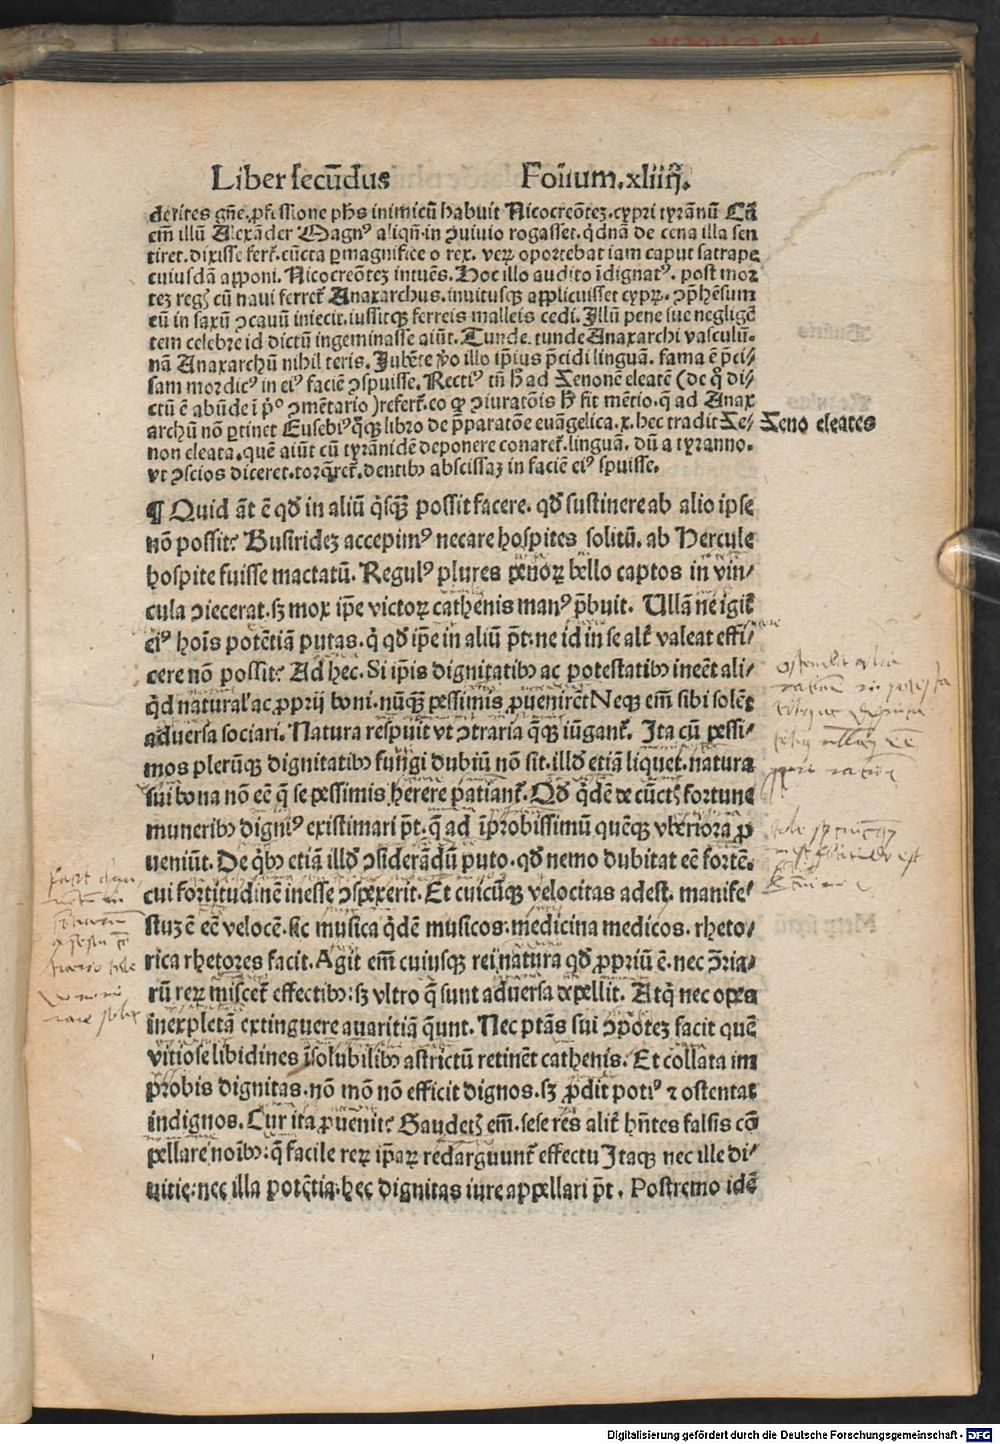 Liber secūdus Foiium.xliiij.
derites gn̄e ꝓfessione phs inimicū habuit Nicocreōteꝫ.cypri tyrānū Cū
em̄ illū Alexāder Magnꝰ aliqn̄.in ꝯuiuio rogasset.qd̄nā de cena illa sen
tiret.dixisse fert᷑.cūcta ꝑmagnifice o rex. veꝝ oportebat iam caput satrape
cuiusdā apponi. Nicocreōteꝫ intuēs. Hoc illo audito īdignatꝰ. post mor
teꝫ regꝭ cū naui ferret᷑ Anaxarchus.inuitusqꝫ applicuisset cypꝝ. ꝯp̄hēsum
eū in saxū ꝯcauū iniecit.iussitqꝫ ferreis malleis cedi. Illū pene sue negligē
tem celebre id dictū ingeminasse aiūt. Tunde.tunde Anaxarchi vasculū.
nā Anaxarchū nihil teris. Jubēte v̊o illo ip̄ius p̄cidi linguā. fama ē p̄ci/
sam mordicꝰ in eiꝰ faciē ꝯspuisse. Rectiꝰ tn̄ h̄ ad Zenonē eleatē (de q̊ di/
ctū ē abūde ī p̊ꝰ ꝯmētario) refert᷑.eo ꝙ ꝯiuratōis h̄ fit mētio.q̄ ad Anax
archū nō ꝑtinet Eusebiꝰ q̊qꝫ libro de p̄paratōe euāgelica.x.hec tradit Ze/ Zeno eleates
non eleata.quē aiūt cū tyrānidē deponere conaret᷑.linguā. dū a tyranno.
vt ꝯscios diceret.torq̄ret᷑.dentibꝫ abscissaꝫ in faciē eiꝰ spuisse.
¶ Quid āt ē qd̛ in aliū q̇sqꝫ̄ possit facere. qd̛ sustinere ab alio ipse
nō possit? Busirideꝫ accepimꝰ necare hospites solitū. ab Hercule
hospite fuisse mactatū. Regulꝰ plures penoꝝ bello captos in vin/
cula ꝯiecerat.sꝫ mox ip̄e victoꝝ cathenis manꝰ p̄buit. Ullā ne igit᷑
eiꝰ hoīs potētiā putas.q̇ qd̛ ip̄e in aliū pt̄.ne id in se alt᷑ valeat effi/
cere nō possit? Ad hec. Si ip̄is dignitatibꝫ ac potestatibꝫ ineēt ali/
q̇d natural᷑ ac ꝓprij boni.nūqꝫ̄ pessimis ꝓuenirēt Neqꝫ em̄ sibi solēt
aduersa sociari. Natura respuit vt ꝯtraria q̄qꝫ iūgant᷑. Ita cū pessi/
mos plerūqꝫ dignitatibꝫ fungi dubiū nō sit.illd̛ etiā liquet.natura
sui bona nō eē q̄ se pessimis herere patiant᷑. Qd̛ q̇dē de cūctꝭ fortune
muneribꝫ digniꝰ existimari pt̄.q̄ ad īprobissimū quēqꝫ vberiora ꝓ
ueniūt. De q̇bꝫ etiā illd̛ ꝯsiderādū puto.qd̛ nemo dubitat eē fortē.
cui fortitudinē inesse ꝯspexerit. Et cuicūqꝫ velocitas adest. manife/
stuꝫ ē eē velocē.sic musica q̇dē musicos.medicina medicos. rheto/
rica rhetores facit. Agit em̄ cuiusqꝫ rei natura qd̛ ꝓpriū ē.nec ꝯ̄tria/
rū reꝝ miscet᷑ effectibꝫ:sꝫ vltro q̄ sunt aduersa depellit. Atq̇ nec opes
inexpletā extinguere auaritiā q̄unt. Nec ptās sui ꝯpoteꝫ facit quē
vitiose libidines īsolubilibꝫ astrictū retinēt cathenis. Et collata im
probis dignitas.nō mō nō efficit dignos.sꝫ ꝓdit potiꝰ ⁊ ostentat
indignos. Cur ita ꝓuenit? Gaudetꝭ em̄.sese res alit᷑ hn̄tes falsis cō
pellare noībꝫ:q̄ facile reꝝ ip̄aꝝ redarguunt᷑ effectu Itaqꝫ nec ille di/
uitie:nec illa potētia.hec dignitas iure appellari pt̄. Postremo idē
Digitalisierung gefördert durch die Deutsche Forschungsgemeinschaft - DFG